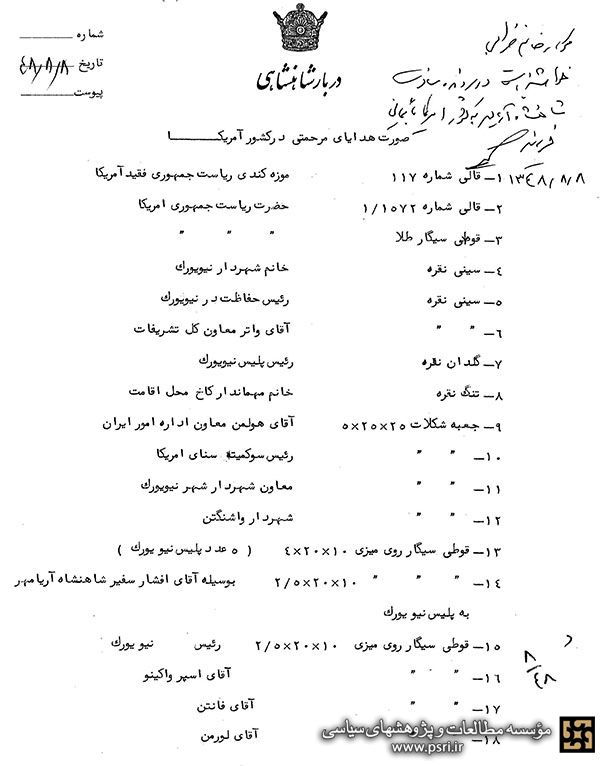 شماره
تاریخ ۴۸/۸/۸
پیوست
دربار شاهنشاهی
صورت هدایای مرحمتی در کشور آمریکا
۱۳۴۸/۸/۸
۱- قالی شماره ۱۱۷ موزه کندی ریاست جمهوری فقید آمریکا
۲- قالی شماره ۱/۱۵۷۲ حضرت ریاست جمهوری امریکا
۳- قوطی سیگار طلا " " "
۴- سینی نقره خانم شهردار نیویورک
۵- سینی نقره رئیس حفاظت در نیویورک
۶- " " آقای واتر معاون کل تشریفات
۷- گلدان نقره رئیس پلیس نیویورک
۸- تنگ نقره خانم مهماندار کاخ محل اقامت
۹- جعبه شکلات ۲۵×۲۵×۵ آقای هولمن معاون اداره امور ایران
۱۰- " " رئیس سوکمیته سنای امریکا
۱۱- " " معاون شهردار شهر نیویورک
۱۲- " " شهردار واشنگتن
۱۳- قوطی سیگار روی میزی ۱۰×۲۰×۴ ( ۵ عدد پلیس نیویورک )
۱۴- " " " ۱۰×۲۰×۲/۵ بوسیله آقای افشار سفیر شاهنشاه آریامهر
به پلیس نیویورک
۱۵- قوطی سیگار روی میزی ۱۰×۲۰×۲/۵ رئیس نیویورک
۱۶- " " آقای اسپر واکینو
۱۷- " " آقای فانتن
۱۸- " " آقای لورمن
۸/۴۸
مؤسسه مطالعات و پژوهشهای سیاسی
www.psri.ir